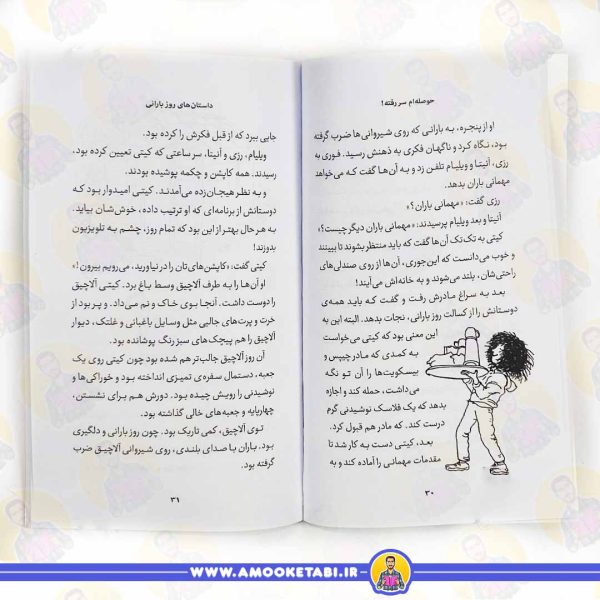 حوصله‌ام سر رفته!
او از پنجره، به بارانی که روی شیروانی‌ها ضرب گرفته
بود، نگاه کرد و ناگهان فکری به ذهنش رسید. فوری به
رزی، آنیتا و ویلیام تلفن زد و به آن‌ها گفت که می‌خواهد
مهمانی باران بدهد.
رزی گفت: «مهمانی باران؟»
آنیتا و بعد ویلیام پرسیدند: «مهمانی باران دیگر چیست؟»
کیتی به تک‌تک آن‌ها گفت که باید منتظر بشوند تا ببینند
و خوب می‌دانست که این‌جوری، آن‌ها از روی صندلی‌های
راحتی‌شان، بلند می‌شوند و به خانه‌اش می‌آیند!
بعد به سراغ مادرش رفت و گفت که باید همه‌ی
دوستانش را از کسالت روز بارانی، نجات بدهد. البته این به
این معنی بود که کیتی می‌خواست
به کمدی که مادر چیپس و
بیسکویت‌ها را آن تو نگه
می‌داشت، حمله کند و اجازه
بدهد که یک فلاسک نوشیدنی گرم
درست کند. که مادر هم قبول کرد.
بعد، کیتی دست به کار شد تا
مقدمات مهمانی را آماده کند و به
۳۰
داستان‌های روز بارانی
جایی ببرد که از قبل فکرش را کرده بود.
ویلیام، رزی و آنیتا، سر ساعتی که کیتی تعیین کرده بود،
رسیدند. همه کاپشن و چکمه پوشیده بودند.
و به نظر هیجان‌زده می‌آمدند. کیتی امیدوار بود که
دوستانش از برنامه‌ای که او ترتیب داده، خوش‌شان بیاید.
به هر حال بهتر از این بود که تمام روز، چشم به تلویزیون
بدوزند!
کیتی گفت: «کاپشن‌های‌تان را در نیاورید، می‌رویم بیرون!»
او آن‌ها را به طرف آلاچیق وسط باغ برد. کیتی آلاچیق
را دوست داشت. آنجا بوی خاک و نم می‌داد. و پر بود از
خرت و پرت‌های جالبی مثل وسایل باغبانی و غلتک، دیوار
آلاچیق را هم پیچک‌های سبز رنگ پوشانده بود.
آن روز آلاچیق جالب‌تر هم شده بود چون کیتی روی یک
جعبه، دستمال سفره‌ی تمیزی انداخته بود و خوراکی‌ها و
نوشیدنی را رویش چیده بود. دورش هم برای نشستن،
چهارپایه و جعبه‌های خالی گذاشته بود.
توی آلاچیق، کمی تاریک بود. چون روز بارانی و دلگیری
بود. باران با صدای بلندی، روی شیروانی آلاچیق ضرب
گرفته بود.
۳۱
WWW.AMOOKETABI.IR